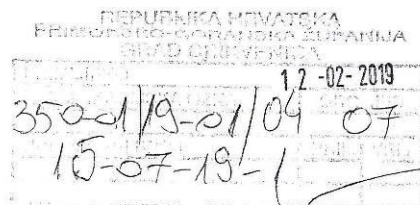 REPUBLIKA HRVATSKA
PRIMORSKO-GORANSKA ŽUPANIJA
GRAD CRIKVENICA
12-02-2019
350-01/19-01/04 07
15-07-19-1